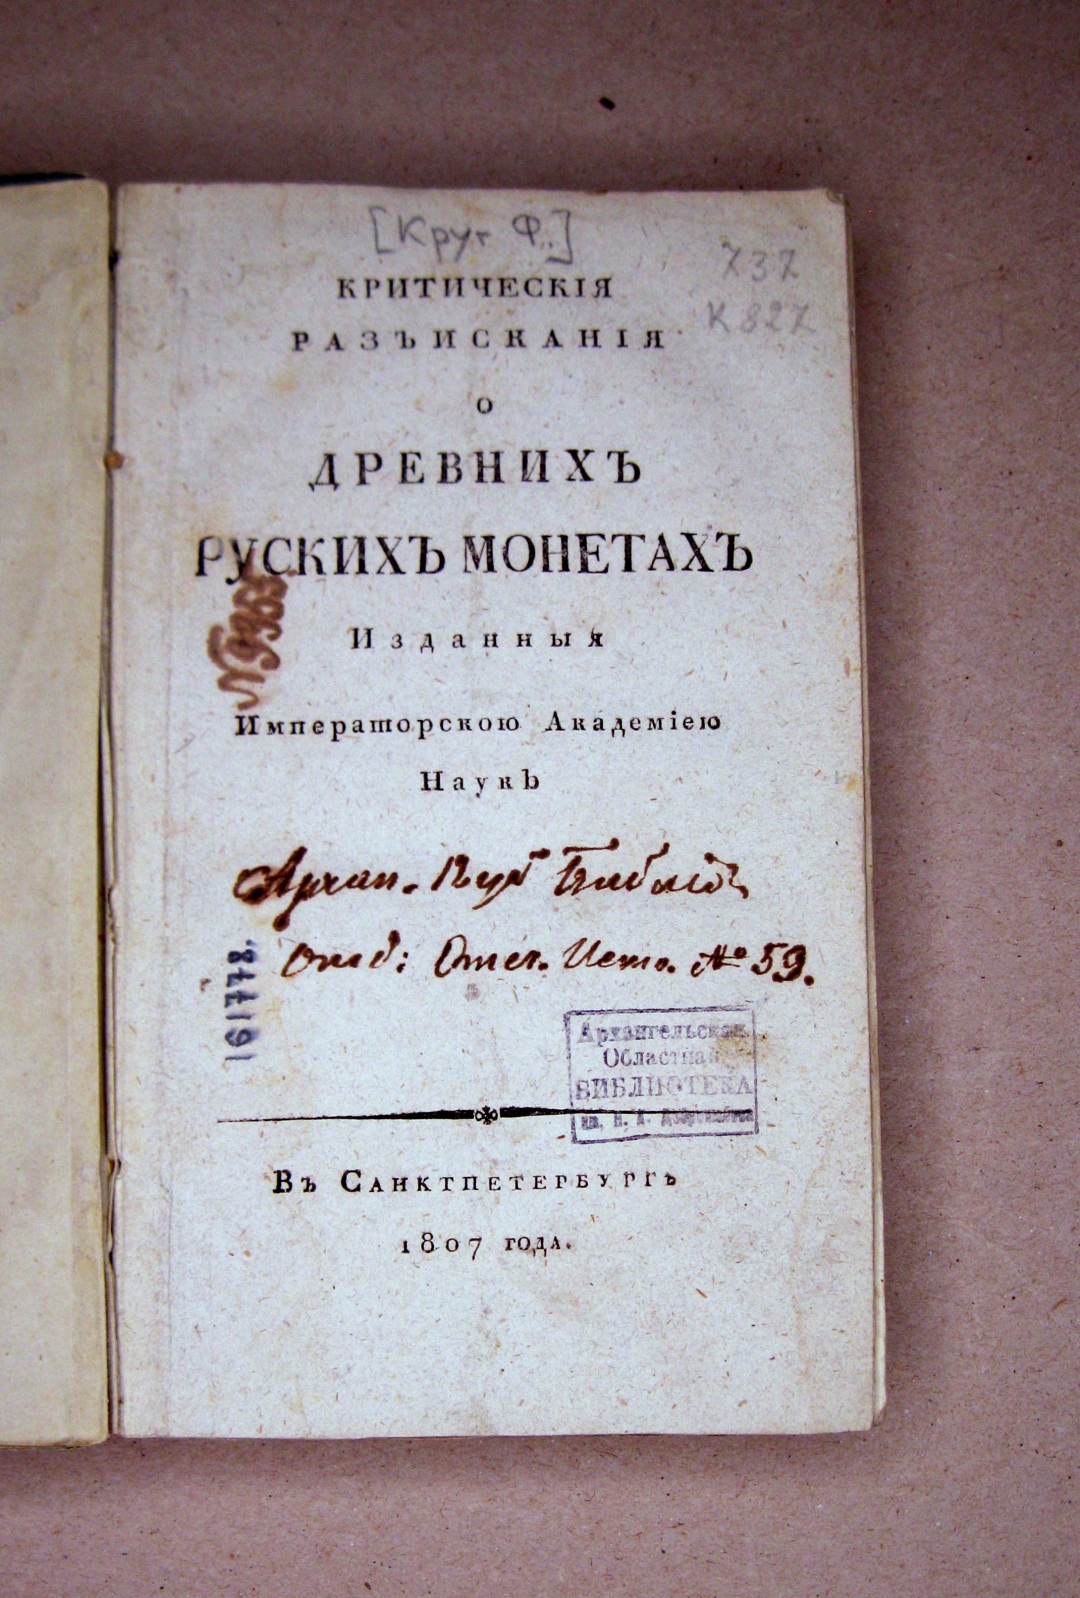 [Круг Ф.]
737
К 827
КРИТИЧЕСКІЯ
РАЗЪИСКАНІЯ
О
ДРЕВНИХЪ
РУСКИХЪ МОНЕТАХЪ
№9365
Изданныя
Императорскою Академіею
Наукъ
Архан. Губ Библіот
Отд: Отеч. Исто. № 59.
161778
Архангельская
Областная
БИБЛИОТЕКА
им. Н. А. Добролюбова
Въ Санктпетербургѣ
1807 года.